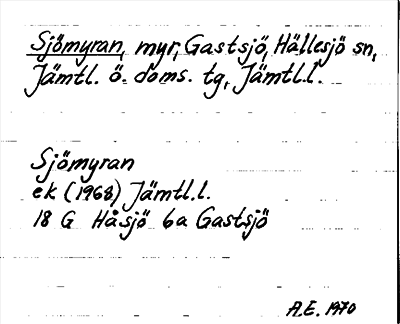 Sjömyran, myr, Gastsjö, Hällesjö sn,
Jämtl. ö. doms. tg, Jämtl.l.
Sjömyran
ek (1968) Jämtl.l.
18 G Håsjö 6a Gastsjö
A.E. 1970